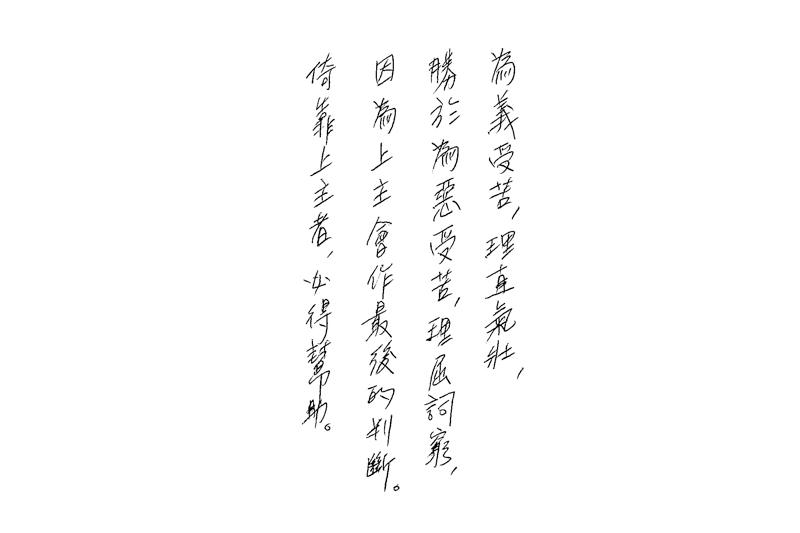 為義受苦，理直氣壯，
勝於為惡受苦，理屈詞窮，
因為上主會作最後的判斷。
倚靠上主者，必得幫助。